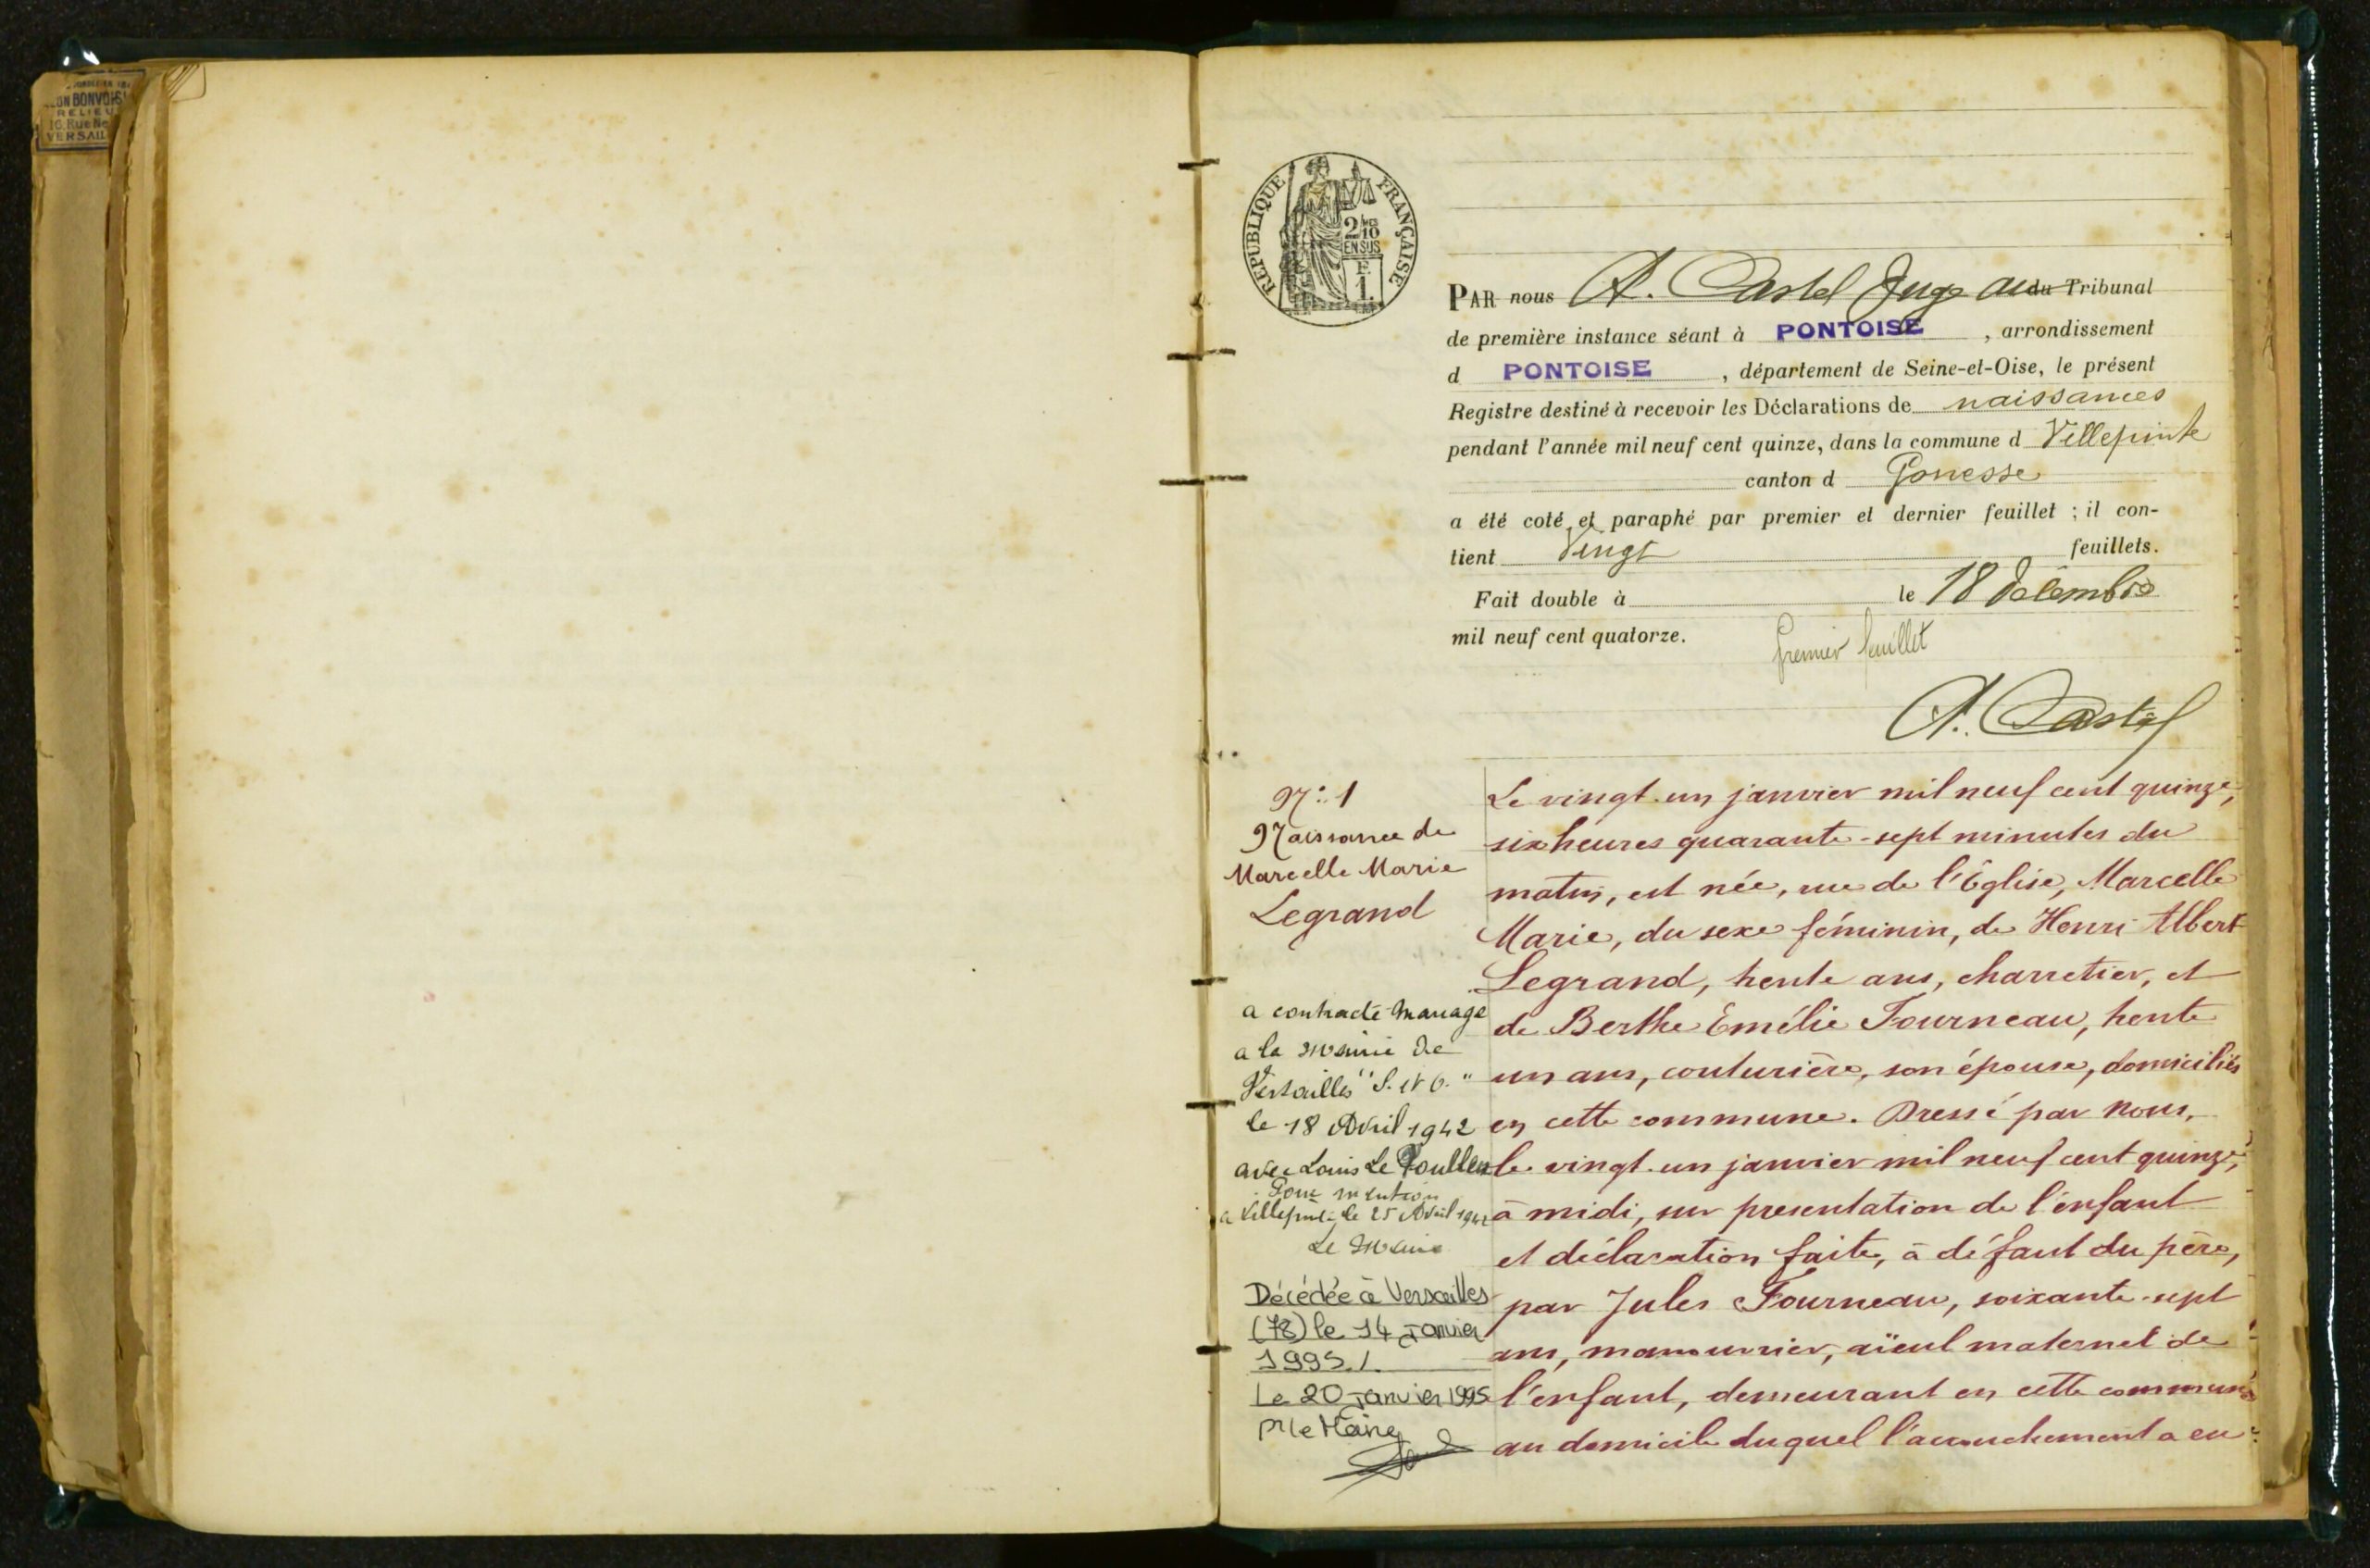 ON BONVOIS
RELIEU
16, Rue Ne
VERSAIL
REPUBLIQUE FRANÇAISE
2/10
EN SUS
F.
1.
PAR nous A. Castel Juge au du Tribunal
de première instance séant à PONTOISE, arrondissement
d PONTOISE, département de Seine-et-Oise, le présent
Registre destiné à recevoir les Déclarations de naissances
pendant l'année mil neuf cent quinze, dans la commune d Villepinte
canton d Gonesse
a été coté et paraphé par premier et dernier feuillet ; il con-
tient Vingt feuillets.
Fait double à le 18 Décembre
mil neuf cent quatorze.
premier feuillet
A. Castel
N° 1
Naissance de
Marcelle Marie
Legrand
a contracté mariage
a la mairie de
Versailles "S. et O."
le 18 Avril 1942
avec Louis Le
Pour mention
a Villepinte le 25 Avril 1942
Le Maire
Décédée à Versailles
(78) le 14 janvier
1995./.
Le 20 janvier 1995
Pr le Maire
Le vingt-un janvier mil neuf cent quinze,
six heures quarante-sept minutes du
matin, est née, rue de l'Église, Marcelle
Marie, du sexe féminin, de Henri Albert
Legrand, trente ans, charretier, et
de Berthe Emélie Fourneau, trente
un ans, couturière, son épouse, domiciliés
en cette commune. Dressé par nous,
le vingt-un janvier mil neuf cent quinze,
à midi, sur presentation de l'enfant
et déclaration faite, à défaut du père,
par Jules Fourneau, soixante-sept
ans, manouvrier, aïeul maternel de
l'enfant, demeurant en cette commune
au domicile duquel l'accouchement a eu